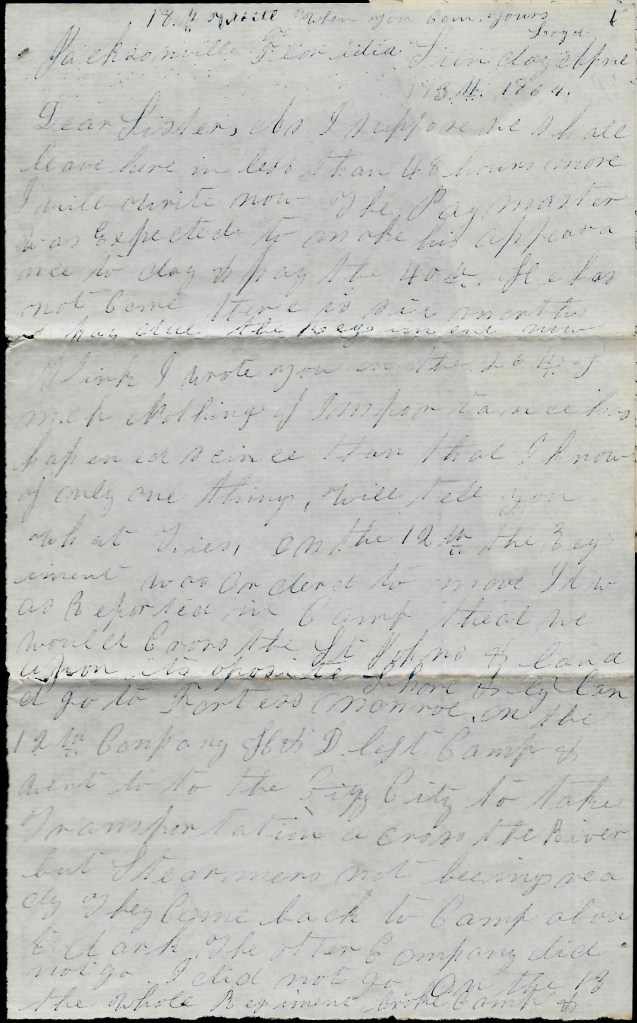 write when you can. yours
Jacksonville Floridia Sunday April
1864.
Dear Sister, As I suppose we shall
leave here in less than 48 hours more
I will write now The Paymaster
was Expected to make his appeara
nce to day & pay the 40th. He has
not Come there is six months
pay due the Regiment now
I wrote you on the 26th of
Nothing of Importance has
hapened science than that I know
of only one thing, will tell you
what tiss, on the 12th the Reg
iment was ordered to move It w
as Reported in Camp that we
would Cross the St Johns & land
upon its oposite Shore only lan
d go to Fortess Monroe, on the
12th Company D left Camp &
went to to the City to take
Transportation across the River
but Steamers not beeing rea
dy They Come back to Camp abou
t dark The other Company did
not go I did not go. On the 13
the whole Regiment broke Camp &